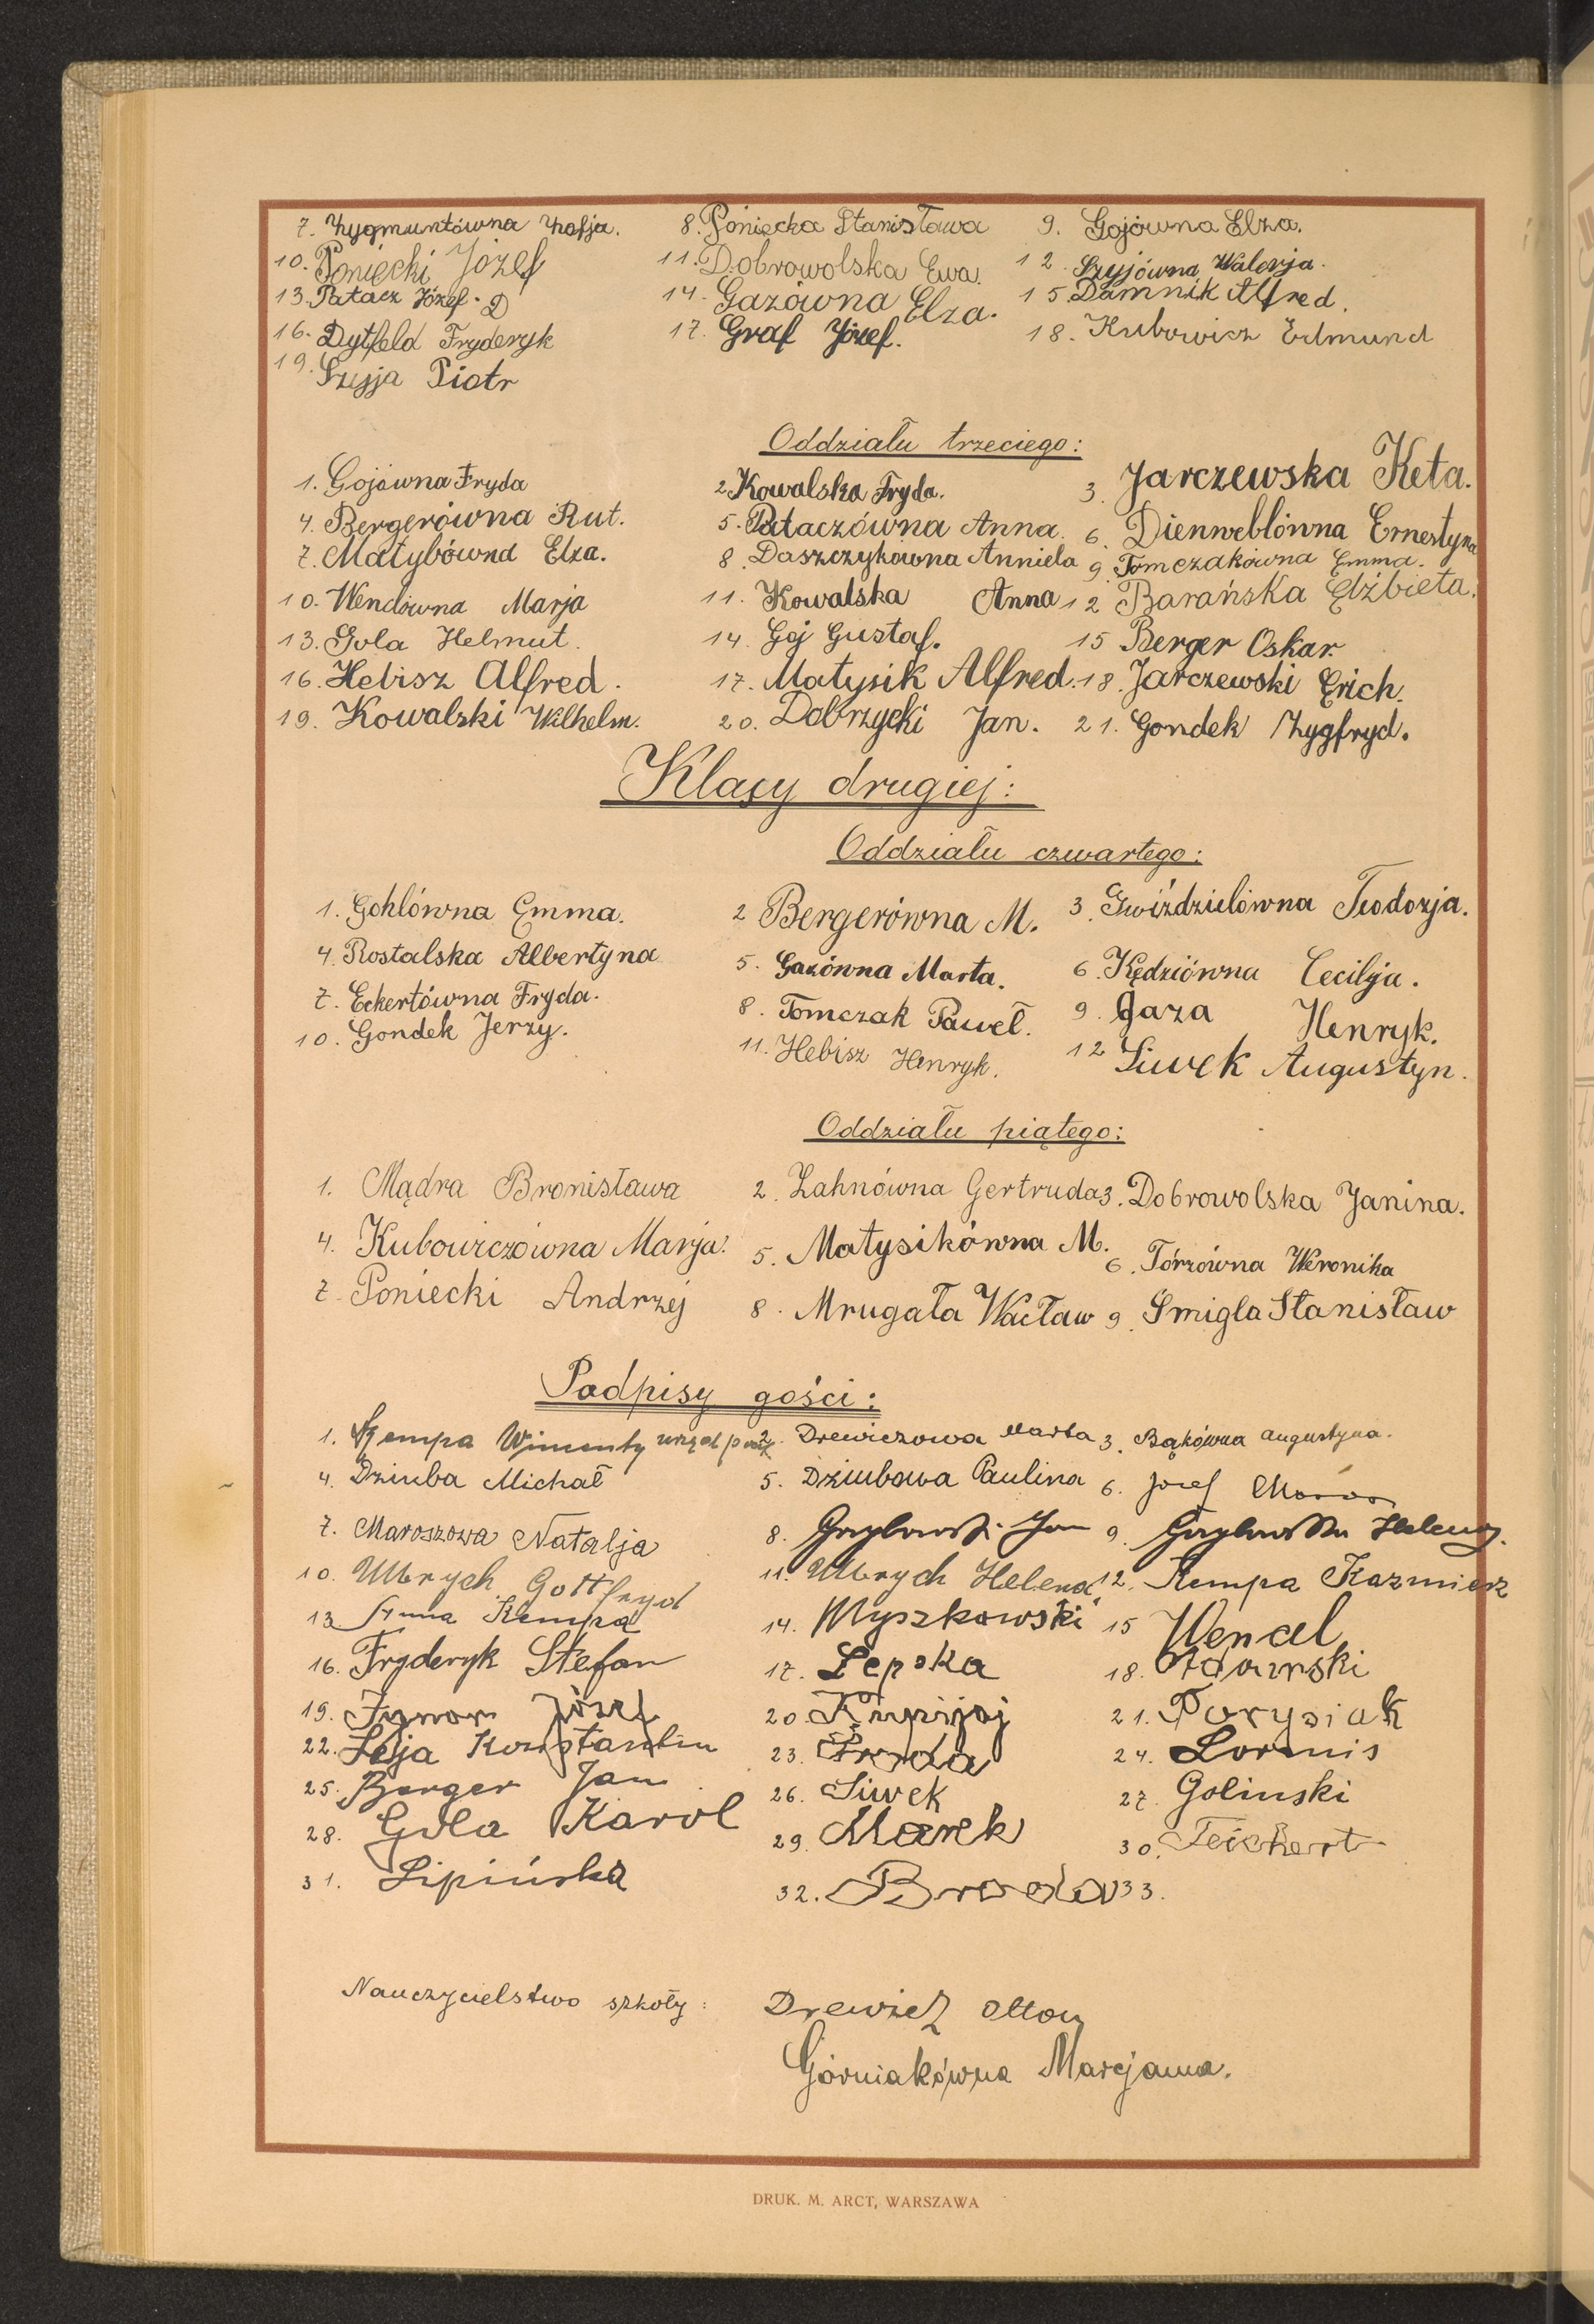 7. Zygmuntówna Zofja. 8. Poniecka Stanisława 9. Gojówna Elza.
10. Poniecki Józef 11. Dobrowolska Ewa. 12. Szyjówna Walerja.
13. Patacz Józef. D 14. Gazówna Elza. 15. Damnik Alfred.
16. Dytfeld Fryderyk 17. Graf Józef. 18. Kubowicz Edmund
19. Szyja Piotr
Oddziału trzeciego:
1. Gojówna Fryda 2. Kowalska Fryda. 3. Jarczewska Keta.
4. Bergerówna Rut. 5. Pataczówna Anna. 6. Dienweblówna Ernestyna
7. Matybówna Elza. 8. Daszczykówna Anniela 9. Tomczakówna Emma.
10. Wendówna Marja 11. Kowalska Anna 12 Barańska Elżbieta.
13. Gola Helmut. 14. Goj Gustaf. 15 Berger Oskar.
16. Hebisz Alfred. 17. Matysik Alfred. 18. Jarczewski Erich.
19. Kowalski Wilhelm. 20. Dobrzycki Jan. 21. Gondek Zygfryd.
Klasy drugiej:
Oddziału czwartego:
1. Gohlówna Emma. 2 Bergerówna M. 3. Gwiździelówna Teodozja.
4. Rostalska Albertyna 5. Gazówna Marta. 6. Kędziówna Cecilja.
7. Eckertówna Fryda. 8. Tomczak Paweł. 9. Gaza Henryk.
10. Gondek Jerzy. 11. Hebisz Henryk. 12 Siwek Augustyn.
Oddziału piątego:
1. Mądra Bronisława 2. Zahnówna Gertruda 3. Dobrowolska Janina.
4. Kubowiczówna Marja. 5. Matysikówna M. 6. Tórzówna Weronika
7. Poniecki Andrzej 8. Mrugała Wacław 9. Smigla Stanisław
Podpisy gości:
1. Kempa 2. Drewiczowa Marta 3. Bąkówna Augustyna.
4. Dziuba Michał 5. Dziubowa Paulina 6. Józef
7. Maroszowa Natalja 8. Jan 9. Helena.
10. Ulbrych Gottfryd 11. Ulbrych Helena 12. Kempa Kazmierz
13 Anna Kempa 14. Myszkowski 15 Wencel
16. Fryderyk Stefan 17. Lepska 18.
19. Józef 20. 21. Parysiak
22. Konstantin 23. 24. Lormis
25. Berger Jan. 26. Siwek 27. Golinski
28. Gola Karol 29. Marek 30. Teichert
31. Lipińska 32. 33.
Nauczycielstwo szkoły: Drewicz Otton
Górniakówna Marcjanna.
DRUK. M. ARCT, WARSZAWA